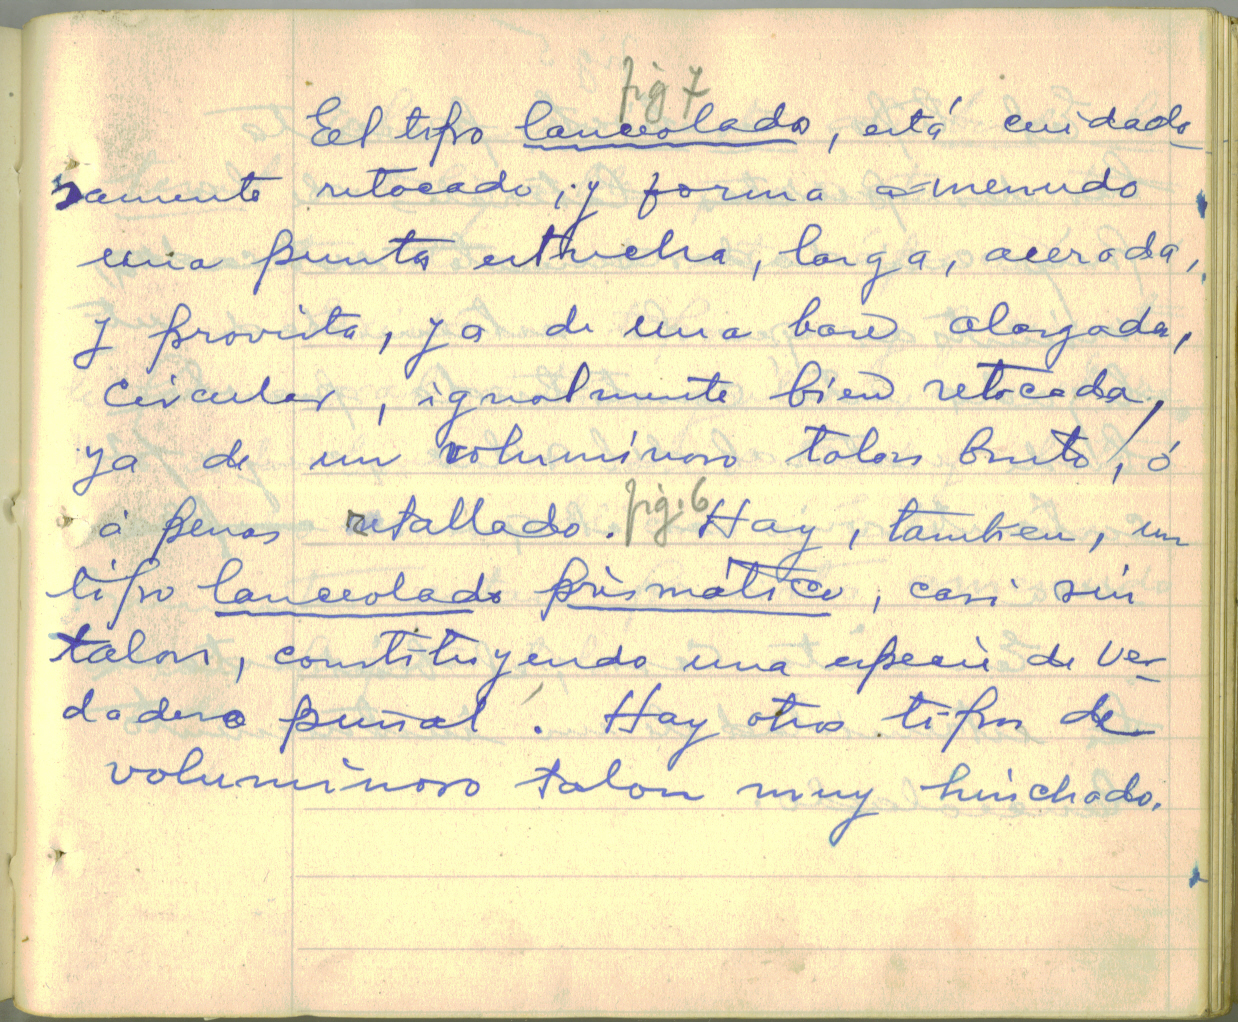 fig 7
El tipo lanceolado, está cuidado-
samente retocado, y forma a menudo
una punta estrecha, larga, acerada,
y provista, ya de una base alargada,
circular, igualmente bien retocada,
ya de un voluminoso talon bruto, ó
á penas retallado. fig. 6 Hay, tambien, un
tipo lanceolado prismático, casi sin
talon, constituyendo una especie de ver-
dadero puñal. Hay otros tipos de
voluminoso talon muy hinchado.